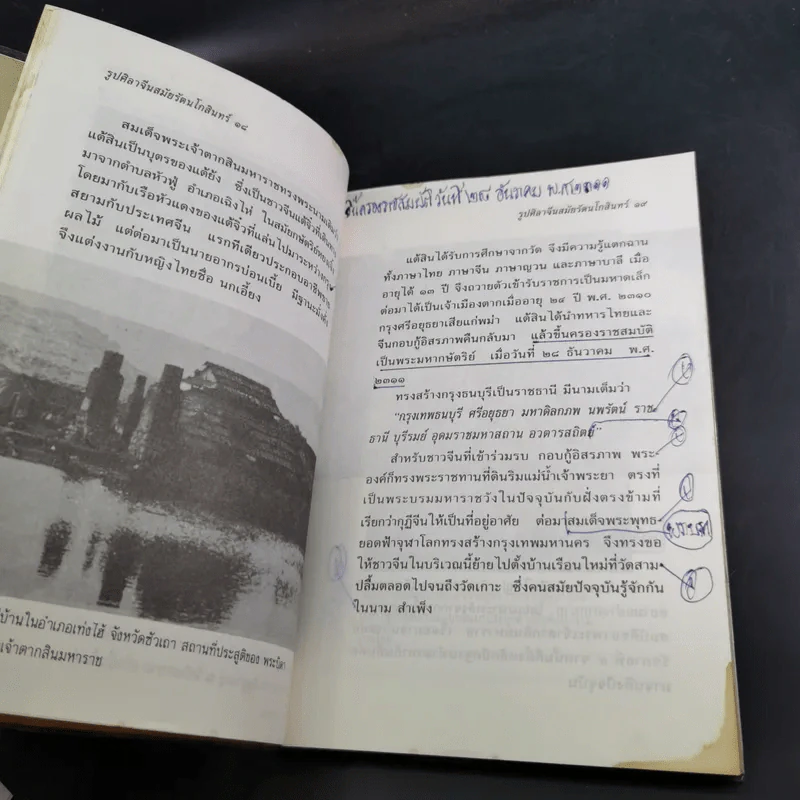 รูปศิลาจีนสมัยรัตนโกสินทร์ ๑๘
สมเด็จพระเจ้าตากสินมหาราชทรงพระนามเดิมว่า
แต้สินเป็นบุตรของแต้ยัง ซึ่งเป็นชาวจีนแต้จิ๋วที่เดินทาง
มาจากตำบลหัวฟู่ อำเภอเถิงไห่ ในสมัยกษัตริย์
โดยมากับเรือหัวแดงของแต้จิ๋วที่แล่นไปมาระหว่างกรุง
สยามกับประเทศจีน แรกทีเดียวประกอบอาชีพขาย
ผลไม้ แต่ต่อมาเป็นนายอากรบ่อนเบี้ย มีฐานะมั่งคั่ง
จึงแต่งงานกับหญิงไทยชื่อ นกเอี้ยง
บ้านในอำเภอเท่งไฮ้ จังหวัดซัวเถา สถานที่ประสูติของ พระบิดา
เจ้าตากสินมหาราช
ขึ้นครองราชสมบัติ วันที่ ๒๘ ธันวาคม พ.ศ. ๒๓๑๑
รูปศิลาจีนสมัยรัตนโกสินทร์ ๑๙
แต้สินได้รับการศึกษาจากวัด จึงมีความรู้แตกฉาน
ทั้งภาษาไทย ภาษาจีน ภาษาญวน และภาษาบาลี เมื่อ
อายุได้ ๑๓ ปี จึงถวายตัวเข้ารับราชการเป็นมหาดเล็ก
ต่อมาได้เป็นเจ้าเมืองตากเมื่ออายุ ๒๘ ปี พ.ศ. ๒๓๑๐
กรุงศรีอยุธยาเสียแก่พม่า แต้สินได้นำทหารไทยและ
จีนกอบกู้อิสรภาพคืนกลับมา แล้วขึ้นครองราชสมบัติ
เป็นพระมหากษัตริย์ เมื่อวันที่ ๒๘ ธันวาคม พ.ศ.
๒๓๑๑
ทรงสร้างกรุงธนบุรีเป็นราชธานี มีนามเต็มว่า
"กรุงเทพธนบุรี ศรีอยุธยา มหาดิลกภพ นพรัตน์ ราช
ธานี บุรีรมย์ อุดมราชมหาสถาน อวตารสถิตย์"
สำหรับชาวจีนที่เข้าร่วมรบ กอบกู้อิสรภาพ พระ
องค์ก็ทรงพระราชทานที่ดินริมแม่น้ำเจ้าพระยา ตรงที่
เป็นพระบรมมหาราชวังในปัจจุบันกับฝั่งตรงข้ามที่
เรียกว่ากุฎีจีนให้เป็นที่อยู่อาศัย ต่อมาสมเด็จพระพุทธ
ยอดฟ้าจุฬาโลกทรงสร้างกรุงเทพมหานคร จึงทรงขอ
ให้ชาวจีนในบริเวณนี้ย้ายไปตั้งบ้านเรือนใหม่ที่วัดสาม
ปลื้มตลอดไปจนถึงวัดเกาะ ซึ่งคนสมัยปัจจุบันรู้จักกัน
ในนาม สำเพ็ง